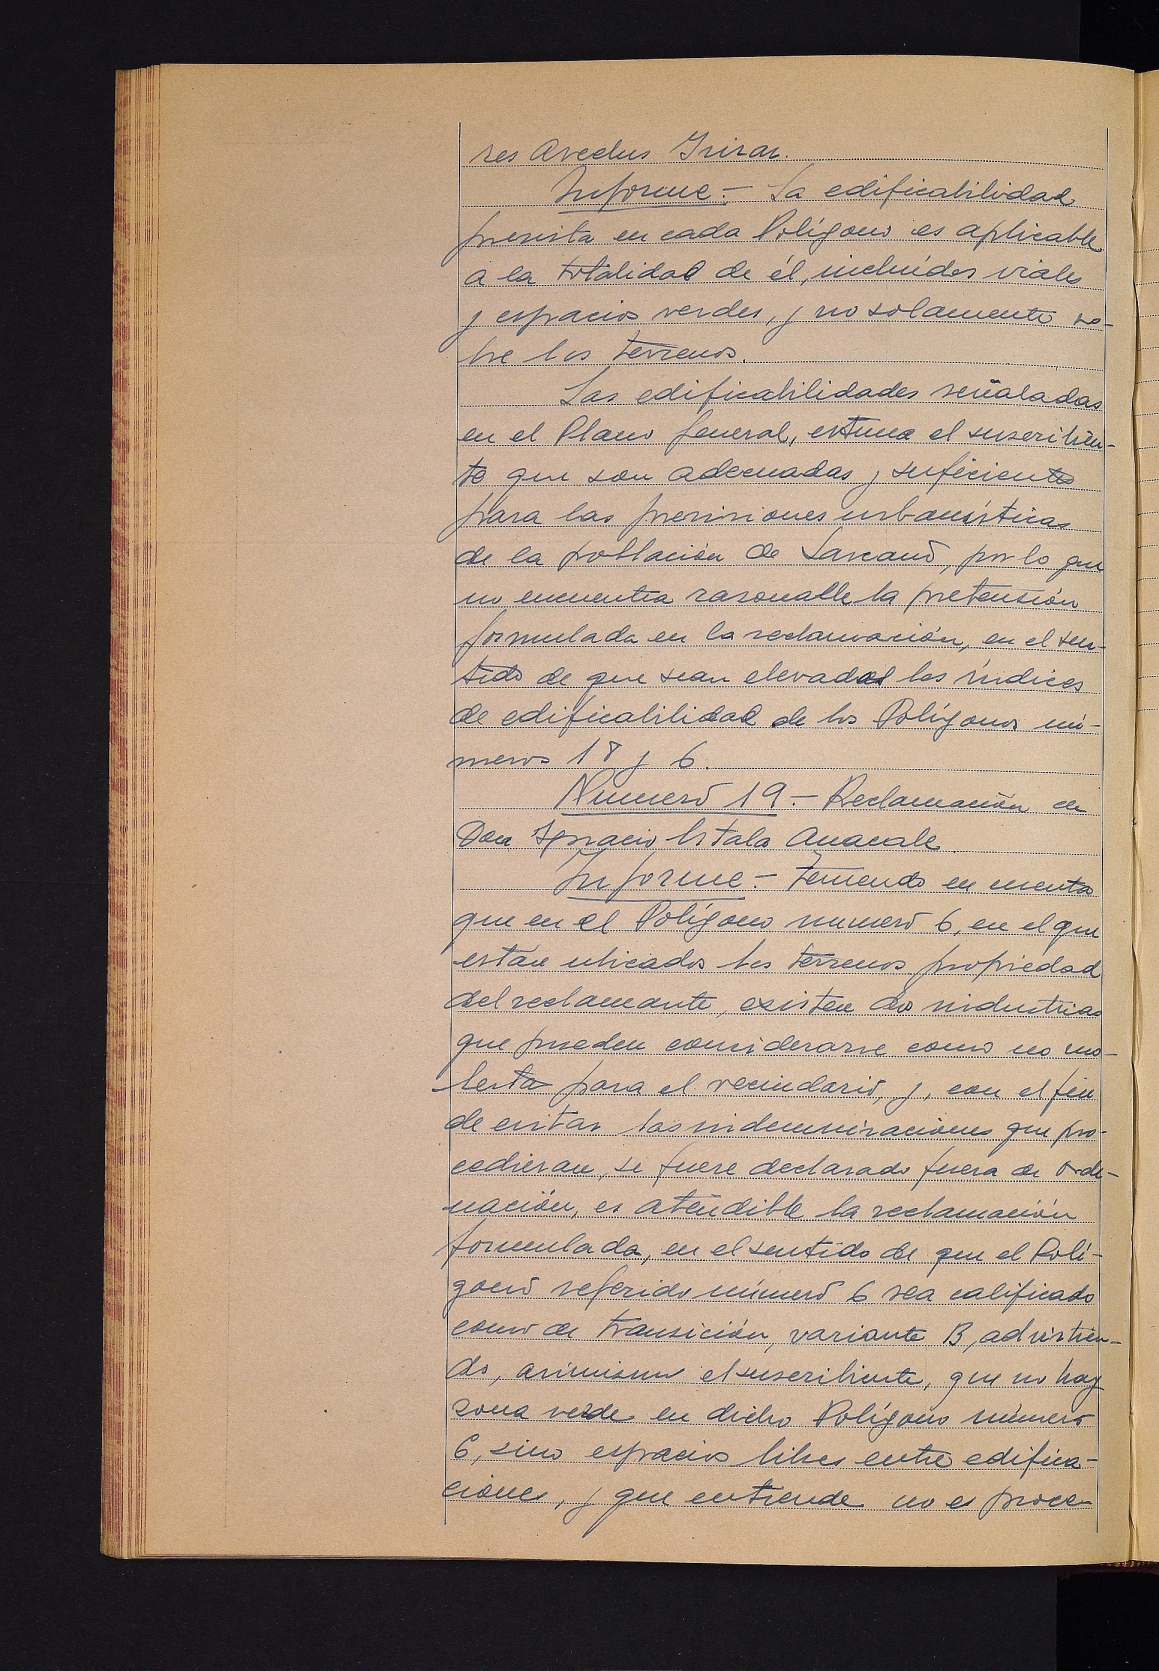 res Aveclus Irizar.
Informe.- La edificabilidad
prevista en cada Polígono es aplicable
a la totalidad de él, incluídos viales
y espacios verdes, y no solamente so-
bre los terrenos.
Las edificabilidades señaladas
en el Plano General, estima el suscribien-
te que son adecuadas y suficientes
para las previsiones urbanísticas
de la población de Lazcano, por lo que
no encuentra razonable la pretensión
formulada en la reclamación, en el sen-
tido de que sean elevados los índices
de edificabilidad de los Polígonos nú-
meros 18 y 6.
Número 19.- Reclamación de
Don Ignacio
Informe.- Teniendo en cuenta
que en el Polígono número 6, en el que
están ubicados los terrenos propiedad
del reclamante, existen dos industrias
que pueden considerarse como no mo-
lesta para el vecindario, y, con el fin
de evitar las indemnizaciones que pro-
cedieran, si fuere declarado fuera de orde-
nación, es atendible la reclamación
formulada, en el sentido de que el Polí-
gono referido número 6 sea calificado
como de transición, variante B, advirtien-
do, asimismo el suscribiente, que no hay
zona verde en dicho Polígono número
6, sino espacios libres entre edifica-
ciones, y que entiende no es proce-